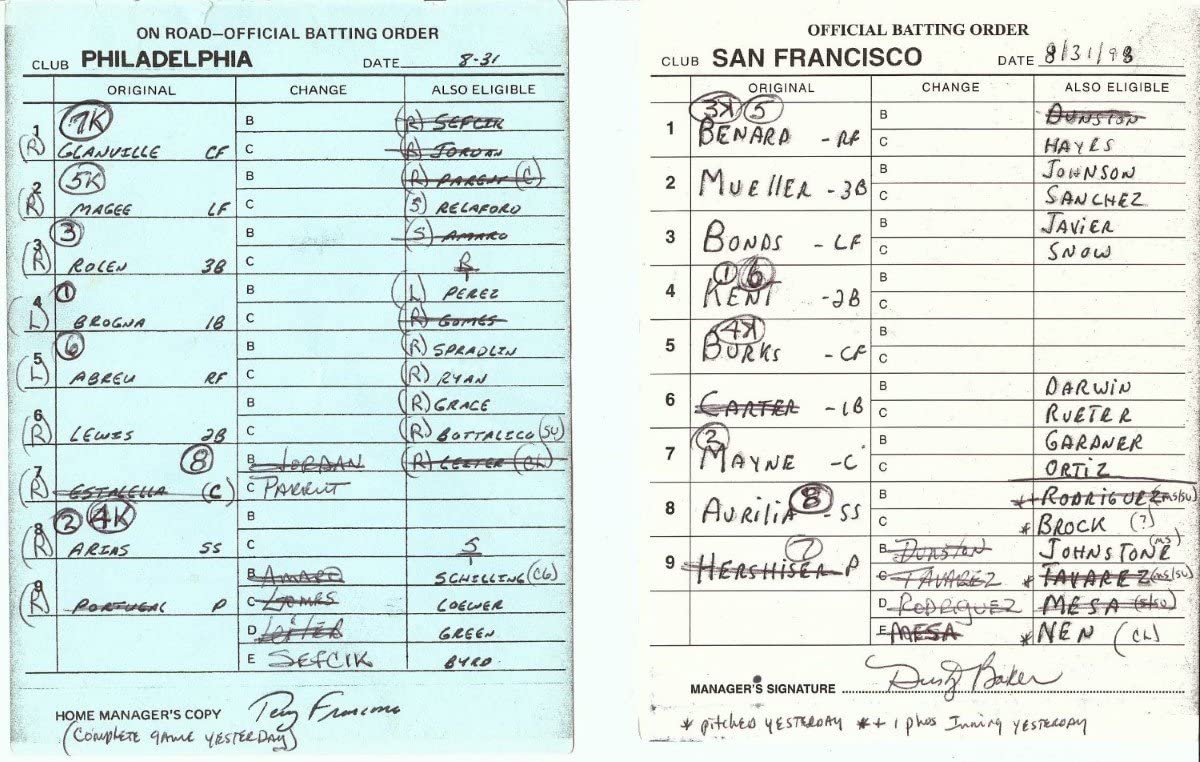 ON ROAD—OFFICIAL BATTING ORDER
CLUB PHILADELPHIA DATE 8-31
ORIGINAL CHANGE ALSO ELIGIBLE
7K B (R) SEFCIK
1 (R) GLANVILLE CF C (R) JORDAN
5K B (R) PARENT (C)
2 (R) MAGEE LF C (S) RELAFORD
3 B (S) AMARO
3 (R) ROLEN 3B C R
1 B (L) PEREZ
4 (L) BROGNA 1B C (R) GOMES
6 B (R) SPRADLIN
5 (L) ABREU RF C (R) RYAN
B (R) GRACE
6 (R) LEWIS 2B C (R) BOTTALICO (SU)
8 B JORDAN (R) LEITER (CL)
7 (R) ESTALELLA (C) C PARENT
2 4K B
8 (R) ARIAS SS C S
B AMARO SCHILLING (CG)
9 (R) PORTUGAL P C GOMES LOEWER
D LEITER GREEN
E SEFCIK BYRD
HOME MANAGER'S COPY Terry Francona
(COMPLETE GAME YESTERDAY)
OFFICIAL BATTING ORDER
CLUB SAN FRANCISCO DATE 8/31/98
ORIGINAL CHANGE ALSO ELIGIBLE
3K 5 B DUNSTON
1 BENARD - RF C HAYES
B JOHNSON
2 MUELLER - 3B C SANCHEZ
B JAVIER
3 BONDS - LF C SNOW
1 6 B
4 KENT - 2B C
4K B
5 BURKS - CF C
B DARWIN
6 CARTER - 1B C RUETER
2 B GARDNER
7 MAYNE - C C ORTIZ
8 B *+ RODRIGUEZ (MS/SU)
8 AURILIA - SS C * BROCK (?)
7 B DUNSTON JOHNSTONE (MS)
9 HERSHISER P C TAVAREZ * TAVAREZ (MS/SU)
D RODRIGUEZ MESA (S/SU)
E MESA * NEN (CL)
MANAGER'S SIGNATURE Dusty Baker
* pitched YESTERDAY *+ 1 plus Inning YESTERDAY